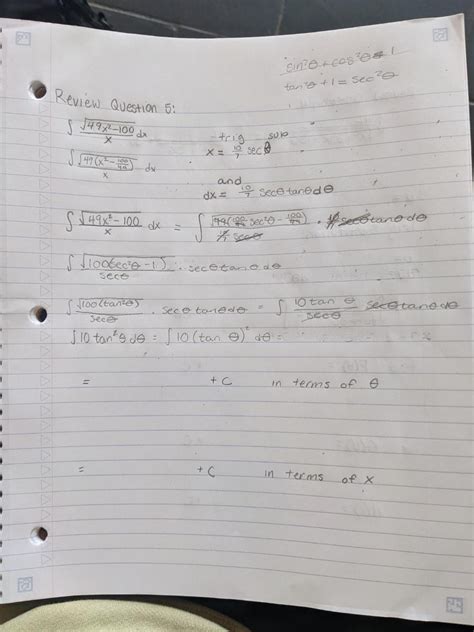 sin²θ + cos²θ = 1
tan²θ + 1 = sec²θ
Review Question 5:
∫ √(49x²-100)/x dx trig sub
x = 10/7 sec θ
∫ √(49(x² - 100/49))/x dx
and
dx = 10/7 secθtanθdθ
∫ √(49x²-100)/x dx = ∫ √(49(100/49 sec²θ - 100/49))/(10/7 secθ) · 10/7 secθtanθdθ
∫ √(100(sec²θ-1))/secθ · secθtanθdθ
∫ √(100(tan²θ))/secθ · secθtanθdθ = ∫ 10 tan θ/secθ secθtanθdθ
∫ 10 tan²θ dθ = ∫ 10 (tan θ)² dθ =
= +C in terms of θ
= +C in terms of x